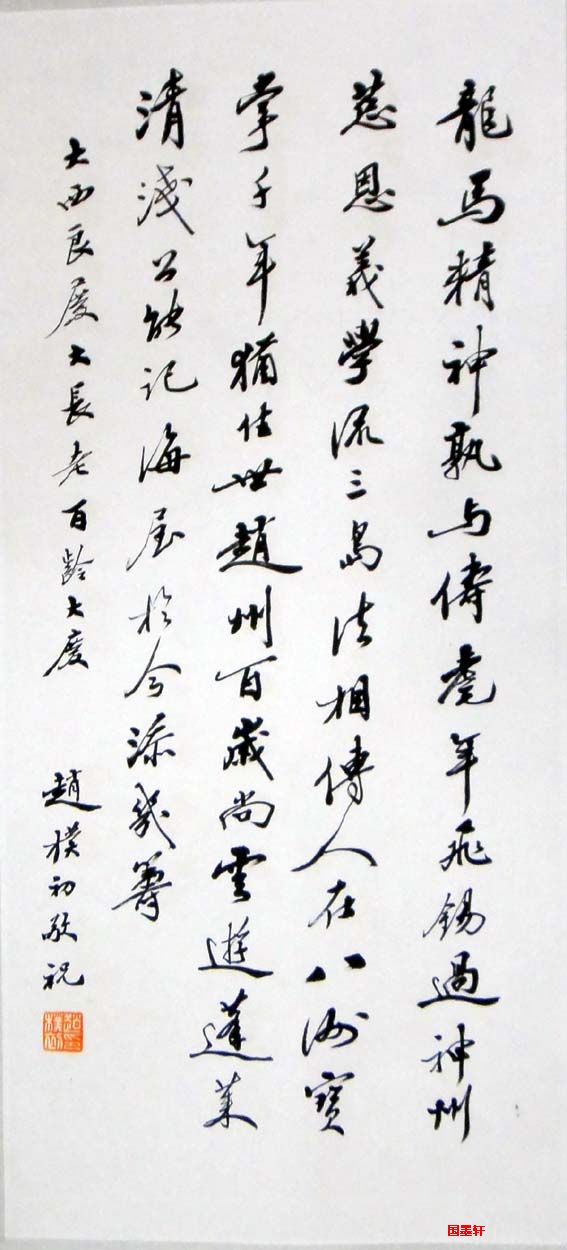 龍馬精神孰與儔耄年飛錫過神州
慈恩義學流三島法相傳人在八洲寶
掌千年猶住世趙州百歲尚雲遊蓬萊
清淺公能記海屋於今添幾籌
大西良慶大長老百齡大慶
趙樸初敬祝
趙樸初
国墨轩